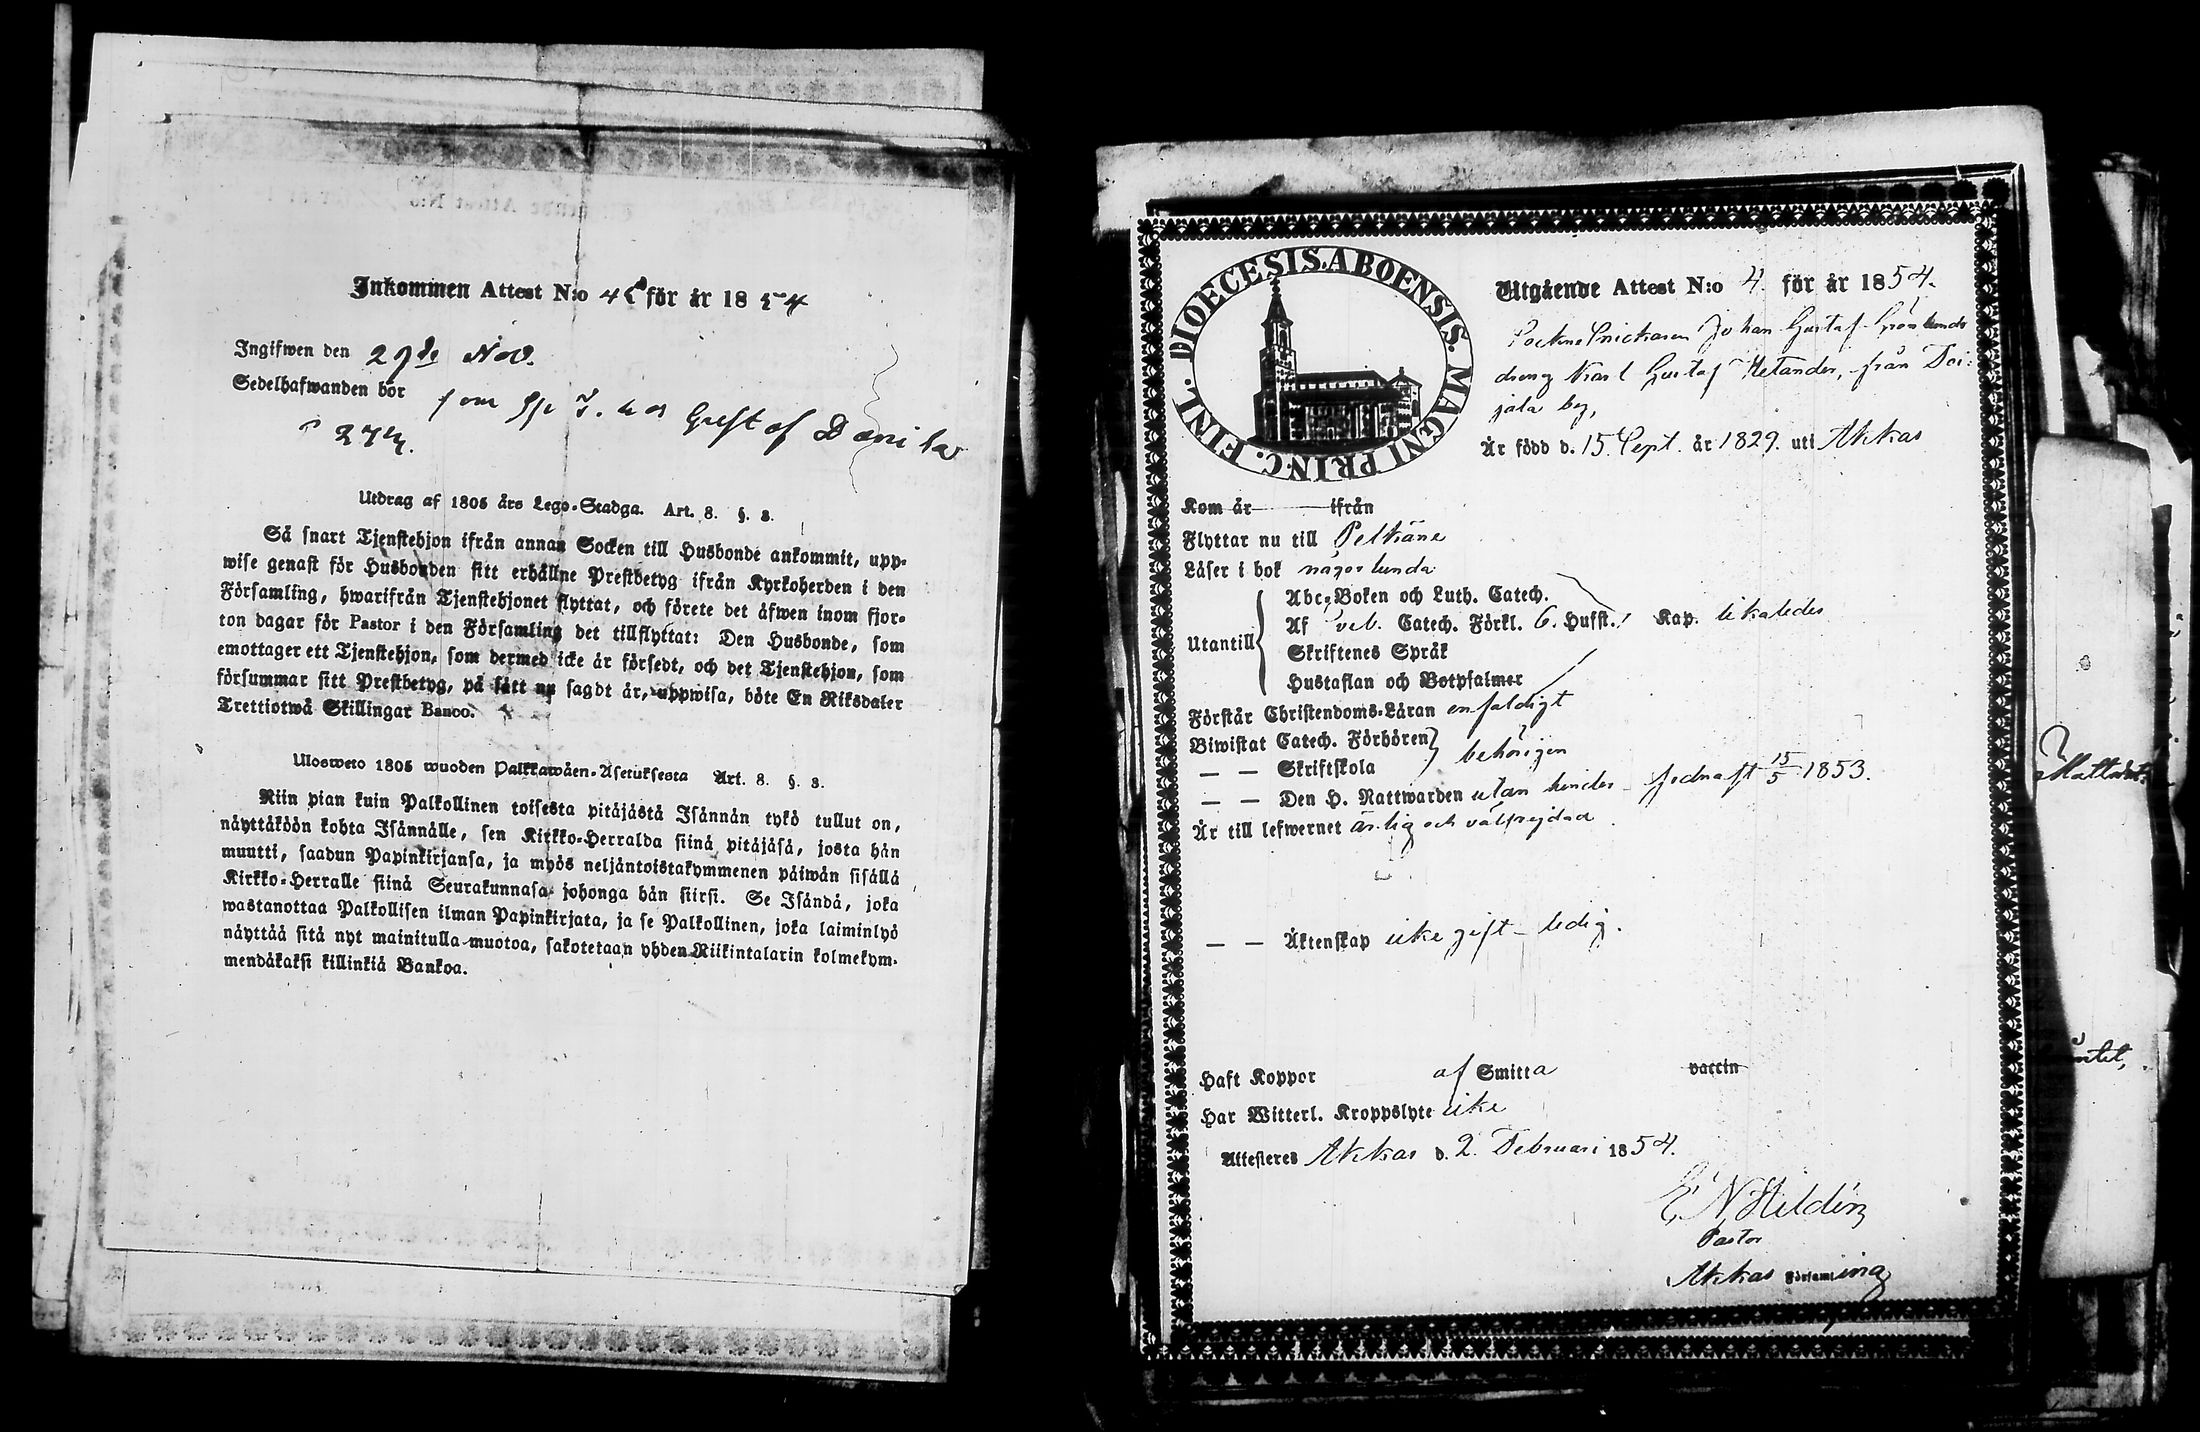 Inkommen Attest N:o för år 1854
Ingifwen den 29de Nov.
Sedelhafwanden bör som hos Gustaf Danila
Utdrag af 1805 års Lego-Stadga. Art. 8. §. 8.
Så snart Tjenstehjon ifrån annan Socken till Husbonde ankommit, upp-
wise genast för Husbonden sitt erhållne Prestbetyg ifrån Kyrkoherden i den
Församling, hwarifrån Tjenstehjonet flyttat, och förete det äfwen inom fjor-
ton dagar för Pastor i den Församling det tillflyttat: Den Husbonde, som
emottager ett Tjenstehjon, som dermed icke är försedt, och det Tjenstehjon, som
försummar sitt Prestbetyg, på sätt nu sagdt är, uppwisa, böte En Riksdaler
Trettiotwå Skillingar Banco.
Ulosweto 1805 wuoden Palkkawäen-Asetuksesta Art. 8. §. 8.
Niin pian kuin Palkollinen toisesta pitäjästä Isännän tykö tullut on,
näyttäköön kohta Isännälle, sen Kirkko-Herralda siinä pitäjäsä, josta hän
muutti, saadun Papinkirjansa, ja myös neljäntoistakymmenen päiwän sisällä
Kirkko-Herralle siinä Seurakunnasa johonga hän siirsi. Se Isändä, joka
wastanottaa Palkollisen ilman Papinkirjata, ja se Palkollinen, joka laiminlyö
näyttää sitä nyt mainitulla muotoa, sakotetaan yhden Riikintalarin kolmekym-
mendäkaksi killinkiä Bankoa.
DIOECESIS. ABOENSIS. MAGNI PRINC. FINL.
Utgående Attest N:o 4. för år 1854.
Johan Gustaf Grönlunds
dreng Karl Gustaf Helander, från Toi-
jala by,
Är född d. 15 Sept. år 1829. uti Akkas
Kom år ifrån
Flyttar nu till Pelkäne
Läser i bok någorlunda
Utantill
Abc-Boken och Luth. Catech.
Af Sveb. Catech. Förkl. 6. Hufst. Kap. likaledes
Skriftenes Språk
Hustaflan och Botpsalmer
Förstår Christendoms-Läran enfaldigt
Biwistat Catech. Förhören
— — Skriftskola behörigen
— — Den H. Nattwarden utan hinder sednast 15/5 1853.
Är till lefwernet ärlig och välfrejdad
— — Äktenskap icke gift - ledig.
Haft Koppor af Smitta vaccin
Har Witterl. Kroppslyte icke
Attesteres Akkas d. 2. Februari 1854.
E N Hildén
Pastor
Akkas Församling